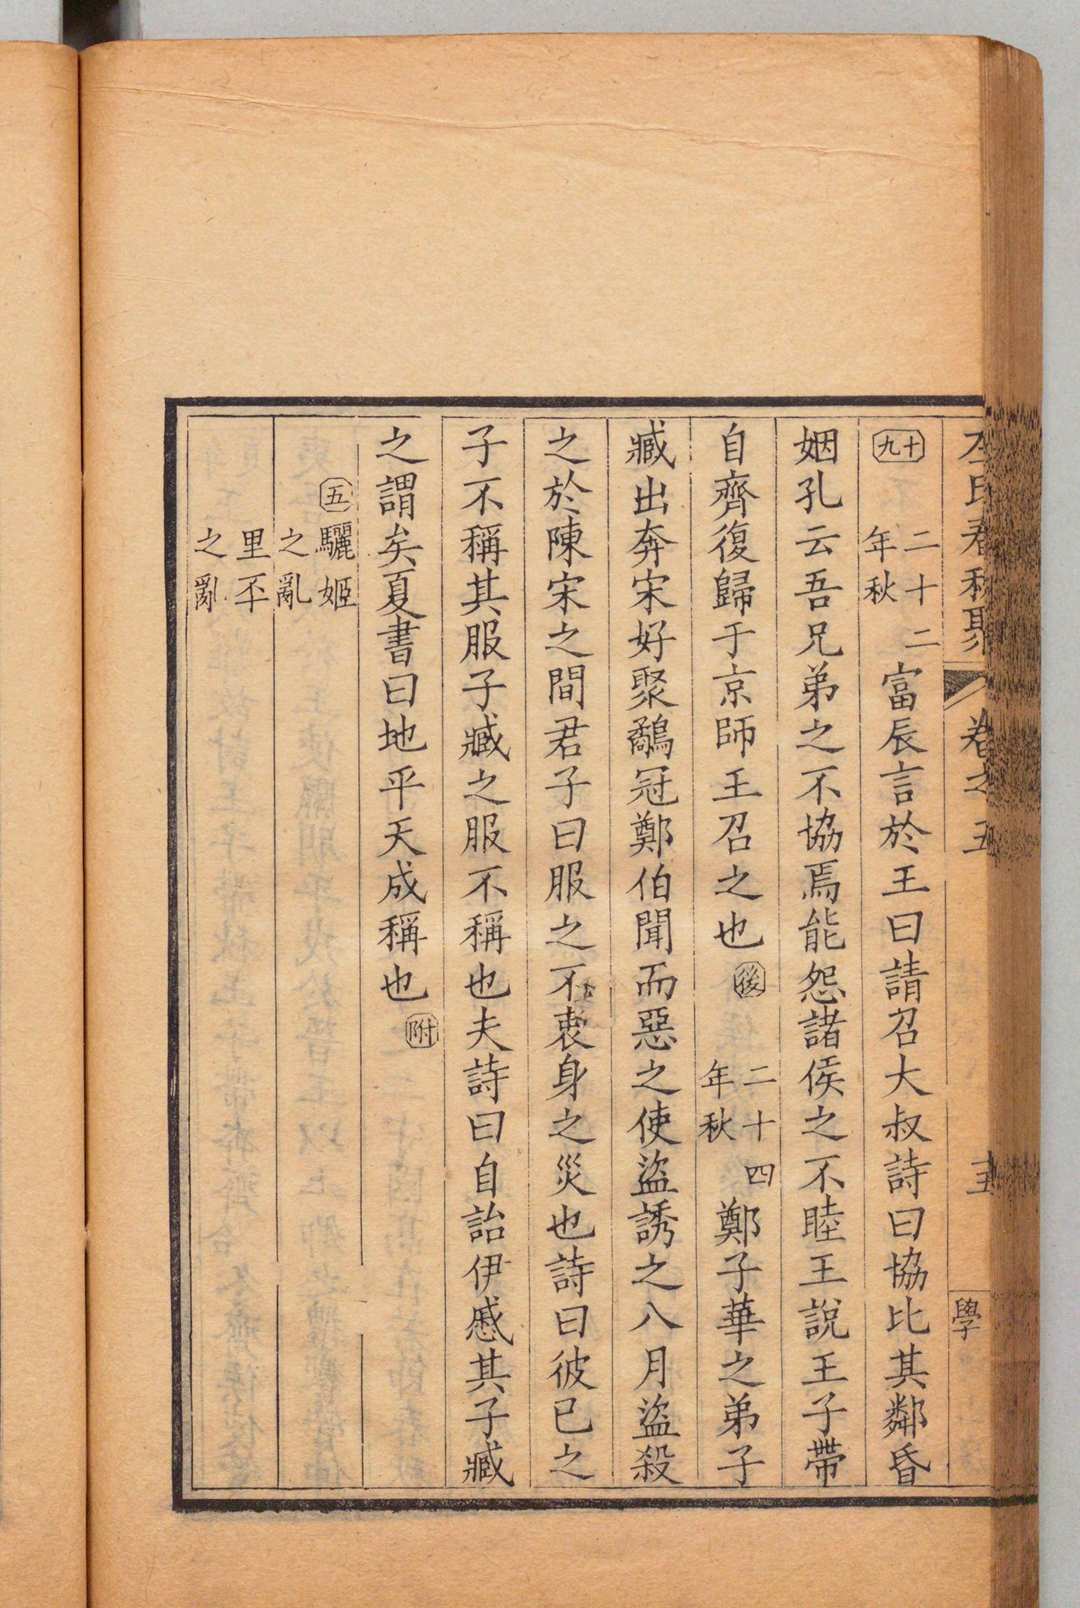 十九 二十二年秋 富辰言於王曰請召大叔詩曰協比其鄰昏
姻孔云吾兄弟之不協焉能怨諸侯之不睦王說王子帶
自齊復歸于京師王召之也 後 二十四年秋 鄭子華之弟子
臧出奔宋好聚鷸冠鄭伯聞而惡之使盜誘之八月盜殺
之於陳宋之間君子曰服之不衷身之災也詩曰彼已之
子不稱其服子臧之服不稱也夫詩曰自詒伊慼其子臧
之謂矣夏書曰地平天成稱也 附
五 驪姬之亂
里丕之亂
卷之五
學